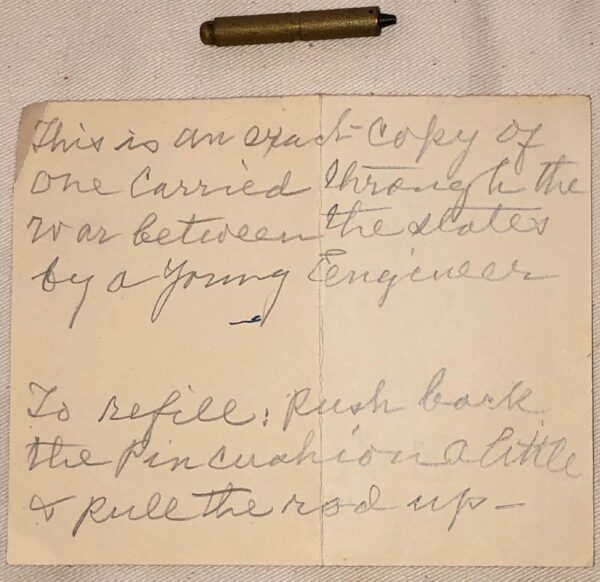 This is an exact copy of
one carried through the
war between the states
by a Young Eengineer
To refill: Push back
the Pincushion a little
& pull the rod up -